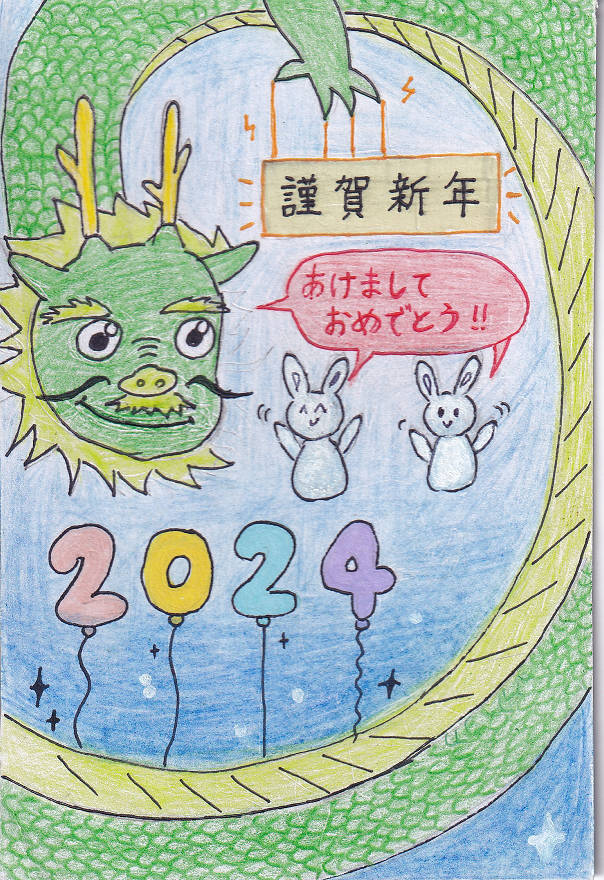 謹賀新年
あけまして
おめでとう!!
2024